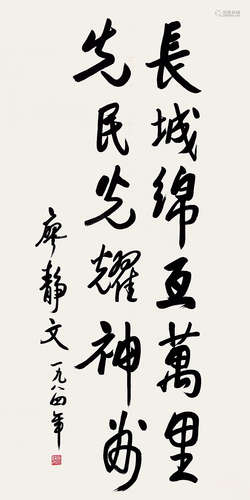 長城綿亙萬里
先民光耀神州
廖靜文 一九八四年